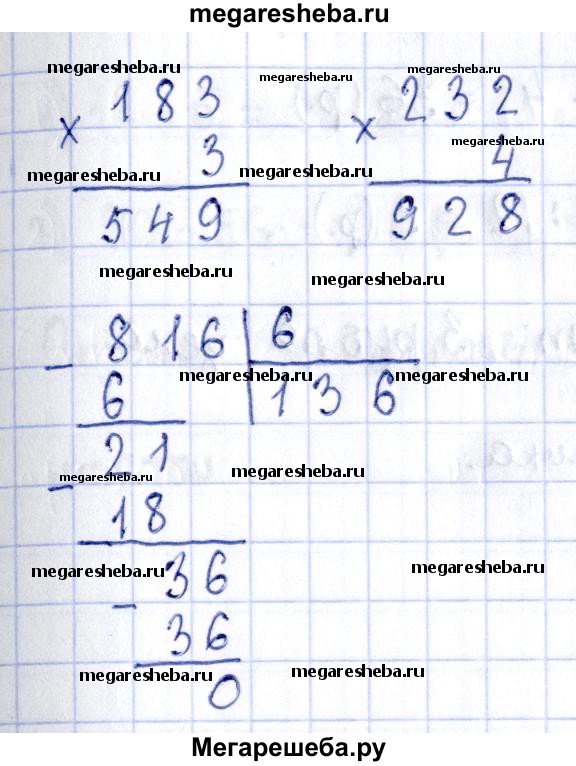 megaresheba.ru
megaresheba.ru megaresheba.ru megaresheba.ru
183 232
× ×
megaresheba.ru
3 4
megaresheba.ru megaresheba.ru
549 928
megaresheba.ru megaresheba.ru
816 6
-
megaresheba.ru megaresheba.ru
6 136
21
megaresheba.ru megaresheba.ru
-
18
megaresheba.ru 36 megaresheba.ru
-
36
megaresheba.ru megaresheba.ru
0
Мегарешеба.ру